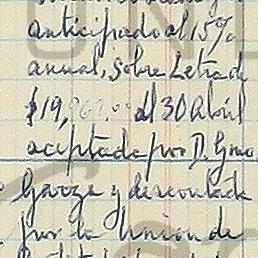 anticipado al 15%
anual, sobre Letra de
$19, al 30 Abril
aceptada por D. Gmo.
Garza y descontada
por la Union de